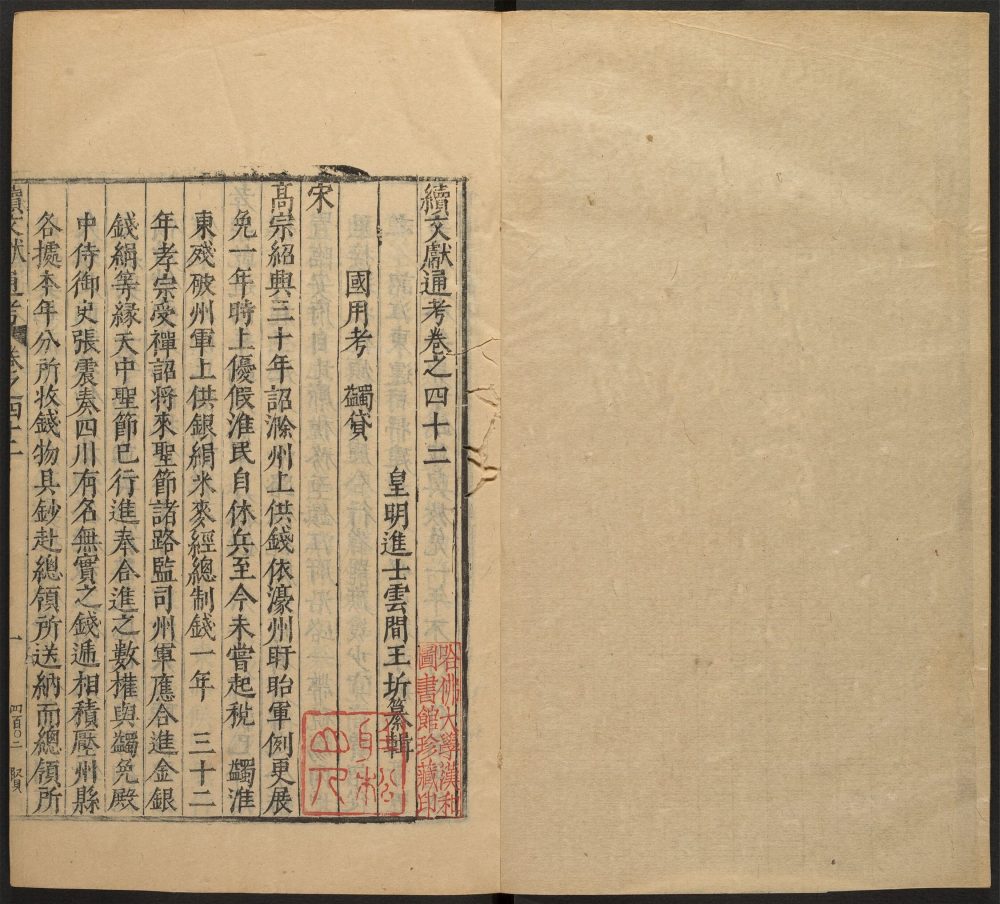 續文獻通考卷之四十二
皇明進士雲間王圻纂輯
國用考 蠲貸
宋
高宗紹興三十年詔滁州上供錢依濠州盱眙軍例更展
免一年時上優假淮民自休兵至今未嘗起稅 蠲淮
東殘破州軍上供銀絹米麥經總制錢一年 三十二
年孝宗受禪詔將來聖節諸路監司州軍應合進金銀
錢絹等緣天中聖節已行進奉合進之數權與蠲免殿
中侍御史張震奏四川有名無實之錢逓相積壓州縣
各據本年分所收錢物具鈔赴總領所送納而總領所
續文獻通考 卷之四十二
一
四百〇二
賢
哈佛大學漢和
圖書館珍藏印